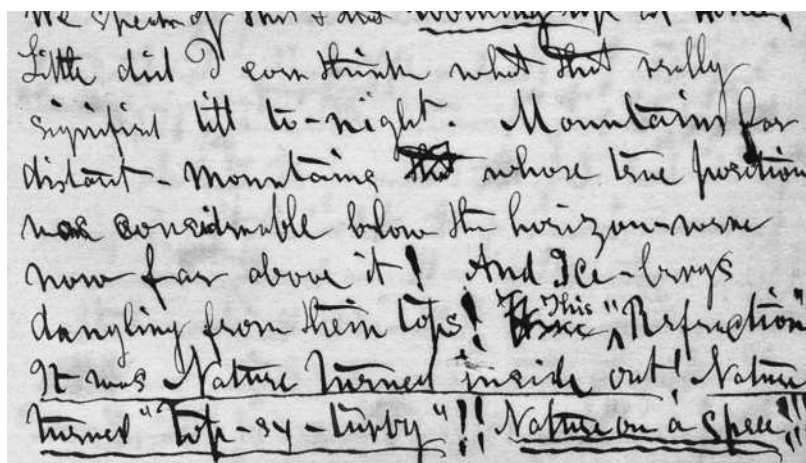 We speak of this & that looming up at times.
Little did I ever think what that really
signified till to-night. Mountains far
distant - mountains whose true position
was considerable below the horizon - were
now far above it! And Ice-bergs
dangling from their tops! This "Refraction"
It was Nature turned inside out! Nature
turned "top-sy-turvy"!! Nature on a spree!!!